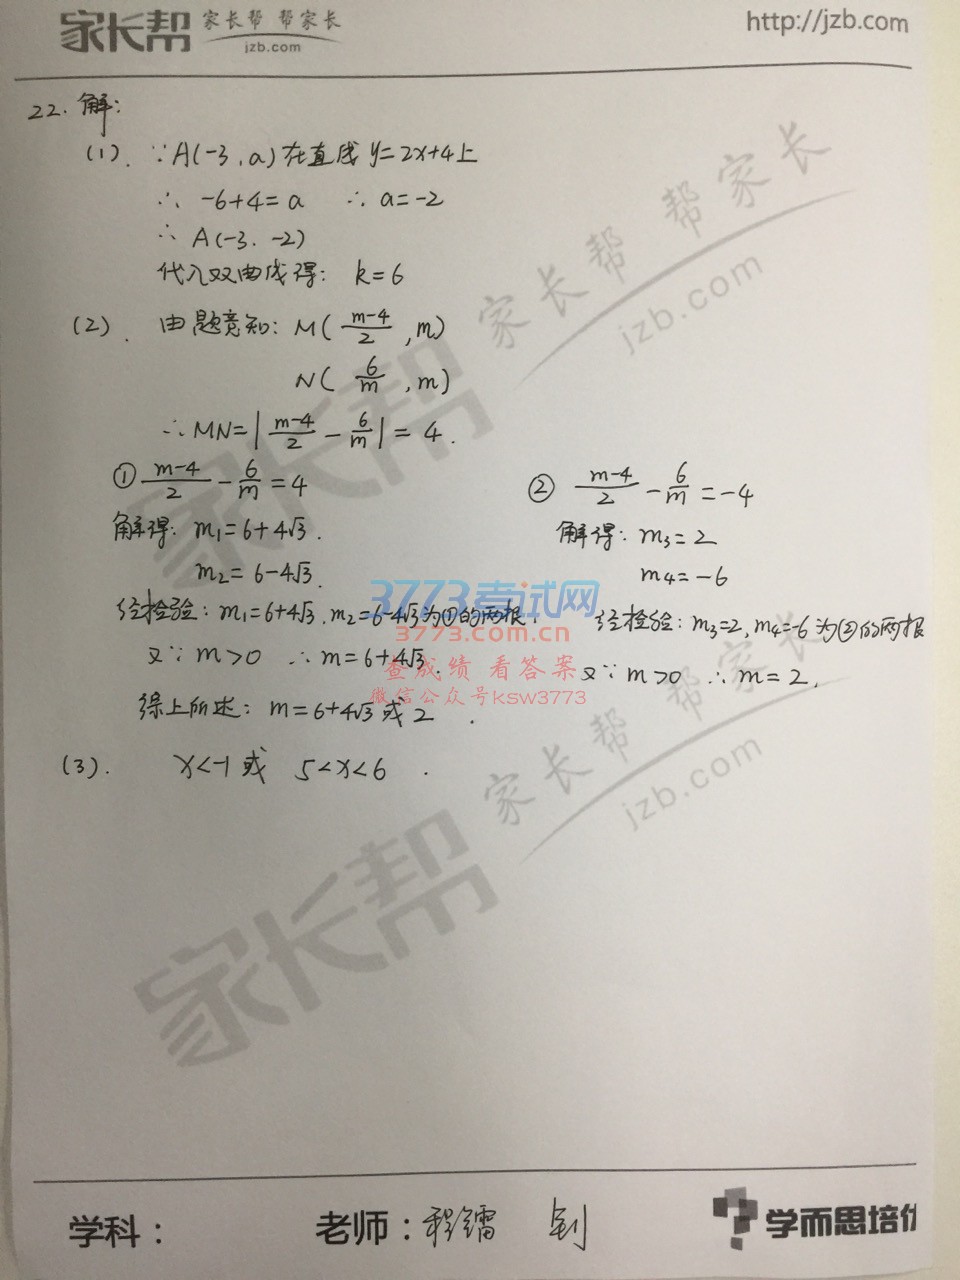 家长帮 家长帮 帮家长 jzb.com
http://jzb.com
22. 解:
(1). ∵A(-3, a)在直线 y=2x+4上
∴ -6+4=a ∴ a=-2
∴ A(-3, -2)
代入双曲线得: k=6
(2). 由题意知: M( \frac{m-4}{2} , m)
N( \frac{6}{m} , m)
∴MN=| \frac{m-4}{2} - \frac{6}{m} | = 4.
① \frac{m-4}{2} - \frac{6}{m} = 4
解得: m₁=6+4√3.
m₂=6-4√3.
经检验: m₁=6+4√3, m₂=6-4√3为①的两根.
又∵ m>0 ∴ m=6+4√3.
② \frac{m-4}{2} - \frac{6}{m} = -4
解得: m₃=2
m₄=-6
经检验: m₃=2, m₄=-6为②的两根
又∵ m>0 ∴ m=2.
综上所述: m=6+4√3或2.
(3). x<-1或 5<x<6.
家长帮 帮家长
jzb.com
家长帮
3773考试网
3773.com.cn
查成绩 看答案
微信公众号ksw3773
家长帮 帮家长
jzb.com
家长帮
学科:
老师: 程镭钊
学而思培优